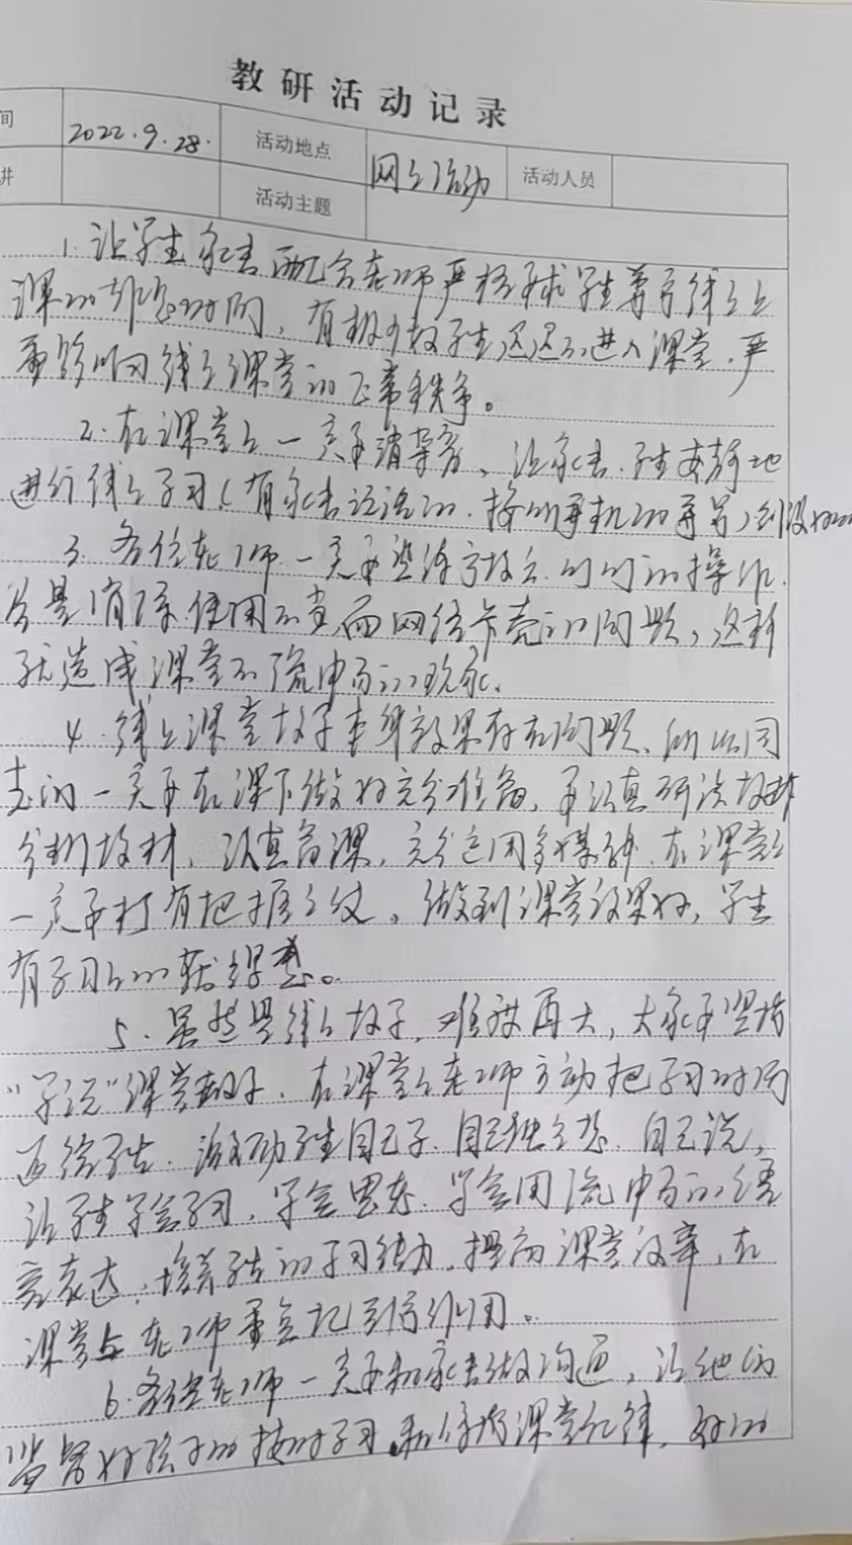 教研活动记录
间 2022.9.28. 活动地点 网上活动 活动人员
讲 活动主题
1. 让学生家长配合老师严格要求学生遵守线上上
课的作息时间,有极少数学生迟迟不进入课堂,严
重影响线上课堂的正常秩序。
2. 在课堂上一定要清杂音,让家长、学生安静地
进行线上学习(有家长说话的,
3. 各位老师一定要熟练掌握 的操作,
使用不当而网络卡壳的问题,这样
就造成课堂不流畅的现象。
4. 线上课堂教学本身效果存在问题,所以同
志们一定要在课下做好充分准备,要认真研读教材
分析教材,认真备课,充分运用多媒体,在课堂上
一定要打有把握之仗,做到课堂效果好,学生
有学习上的获得感。
5. 虽然是线上教学,难度再大,大家要坚持
“学说”课堂教学,在课堂上老师主动把学习时间
还给学生,激励学生自己学,自己独立想,自己说,
让学生学会学习,学会思考,学会用流畅的语
言表达,培养学生的学习能力,提高课堂效率,在
课堂上老师要负起引导作用。
6. 各位老师一定要和家长做好沟通,让他们
监督好孩子的按时学习和保持课堂纪律,好的